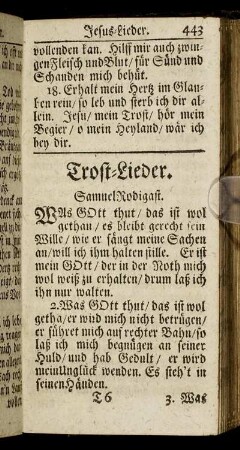 Jesus-Lieder. 443
vollenden kan. Hilff mir auch zwin-
gen Fleisch und Blut/ für Sünd und
Schanden mich behüt.
18. Erhalt mein Hertz im Glau-
ben rein/ so leb und sterb ich dir al-
lein. Jesu/ mein Trost/ hör mein
Begier/ o mein Heyland/ wär ich
bey dir.
Trost-Lieder.
Samuel Rodigast.
WAs GOtt thut/ das ist wol
gethan/ es bleibt gerecht sein
Wille/ wie er fängt meine Sachen
an/ will ich ihm halten stille. Er ist
mein GOtt/ der in der Noth mich
wol weiß zu erhalten/ drum laß ich
ihn nur walten.
2. Was GOtt thut/ das ist wol
getha/ er wird mich nicht betrügen/
er führet mich auf rechter Bahn/ so
laß ich mich begnügen an seiner
Huld/ und hab Gedult/ er wird
mein Unglück wenden. Es steh't in
seinen Händen.
T6 3. Was